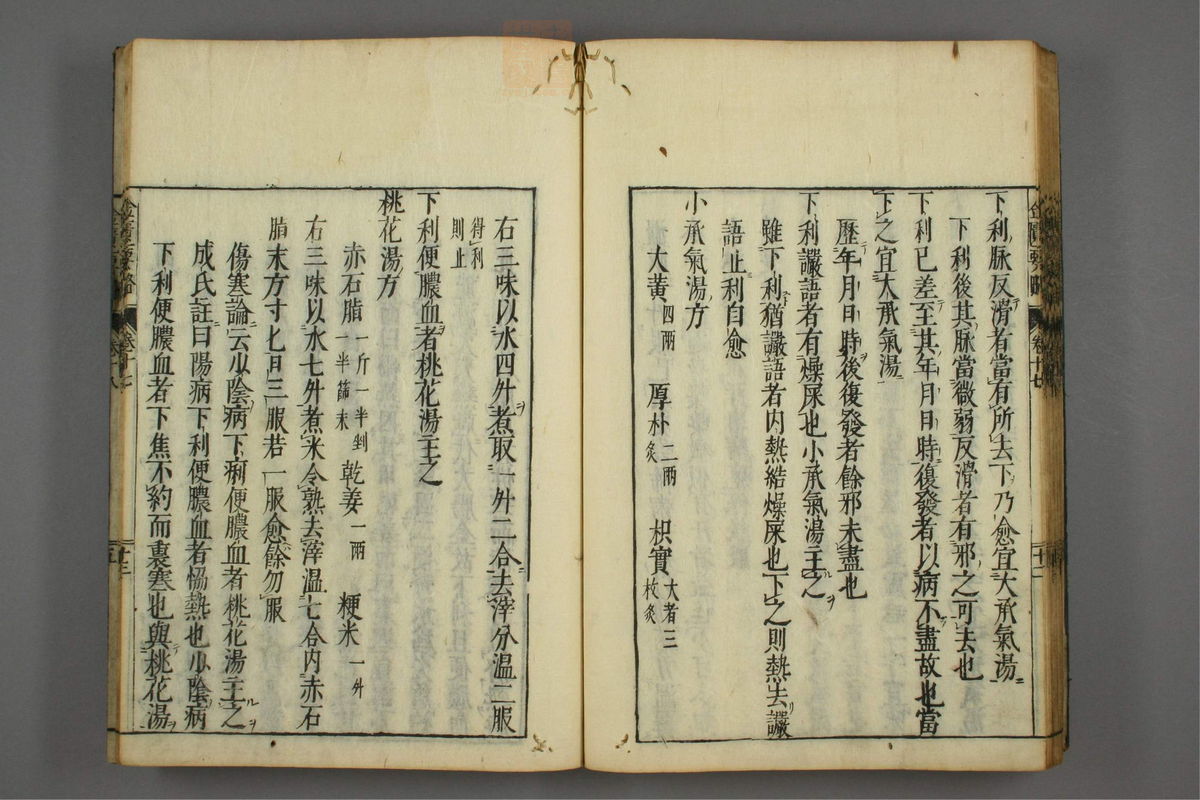 下利脉反滑者當有所去下乃愈宜大承氣湯
下利後其脉當微弱反滑者有邪之可去也
下利已差至其年月日時復發者以病不盡故也當
下之宜大承氣湯
歷年月日時後復發者餘邪未盡也
下利讝語者有燥屎也小承氣湯主之
雖下利猶讝語者内熱結燥屎也下之則熱去讝
語止利自愈
小承氣湯方
大黄四兩 厚朴二兩炙 枳實大者三枚炙
右三味以水四升煮取一升二合去滓分温二服
得利則止
下利便膿血者桃花湯主之
桃花湯方
赤石脂一斤一半剉一半篩末 乾姜一兩 粳米一升
右三味以水七升煮米令熟去滓温七合内赤石
脂末方寸匕日三服若一服愈餘勿服
傷寒論云少陰病下利便膿血者桃花湯主之
成氏註曰陽病下利便膿血者恊熱也少陰病
下利便膿血者下焦不約而裏寒也與桃花湯